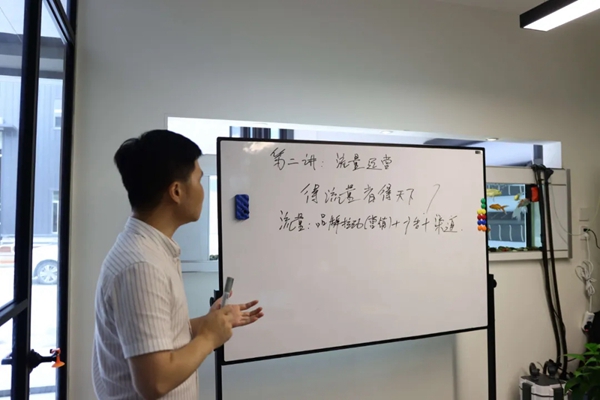 第二讲：流量运营
得流量者得天下？
流量：品牌活动(营销)+广告+渠道